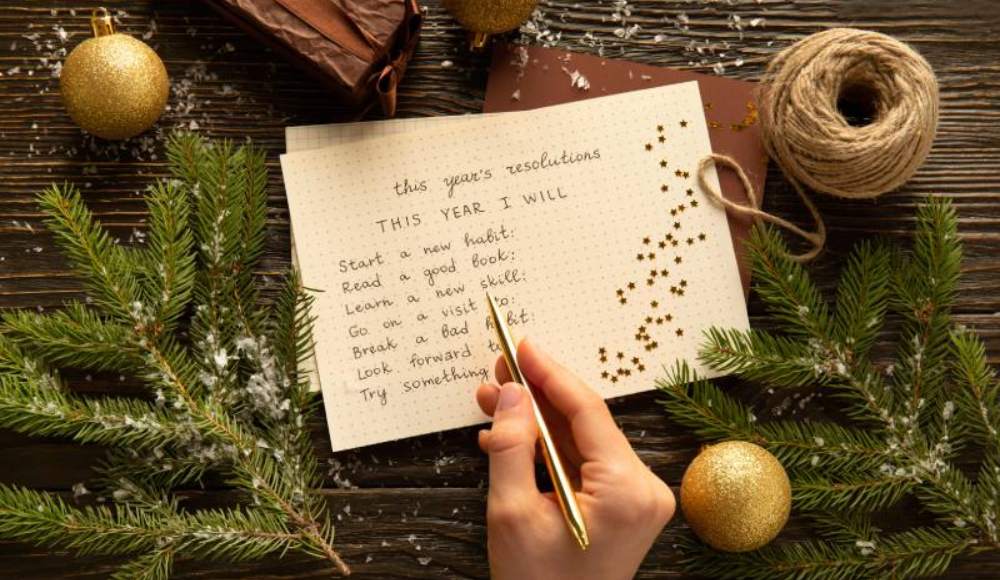 this year's resolutions
THIS YEAR I WILL
Start a new habit:
Read a good book:
Learn a new skill:
Go on a visit to:
Break a bad habit:
Look forward
Try something